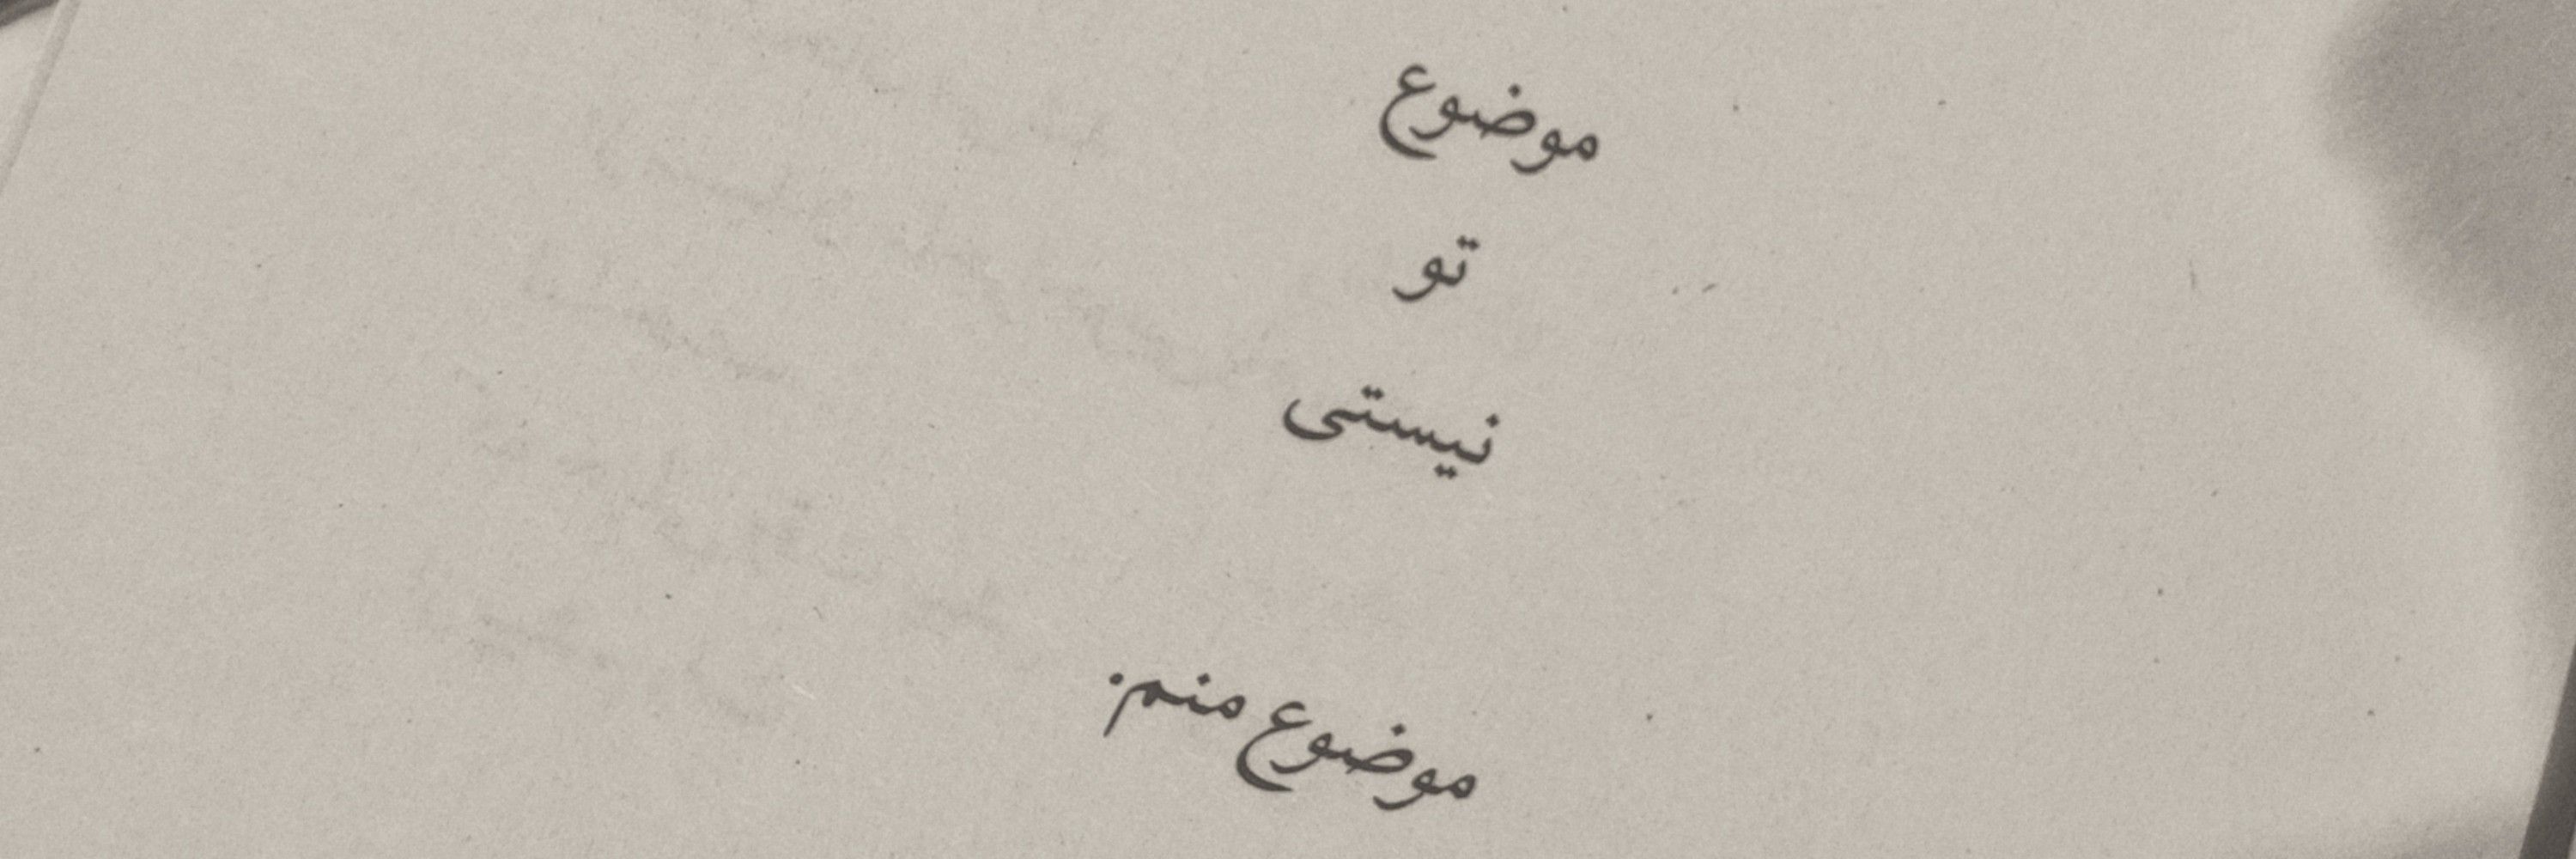 موضوع
تو
نیستی
موضوع منم.